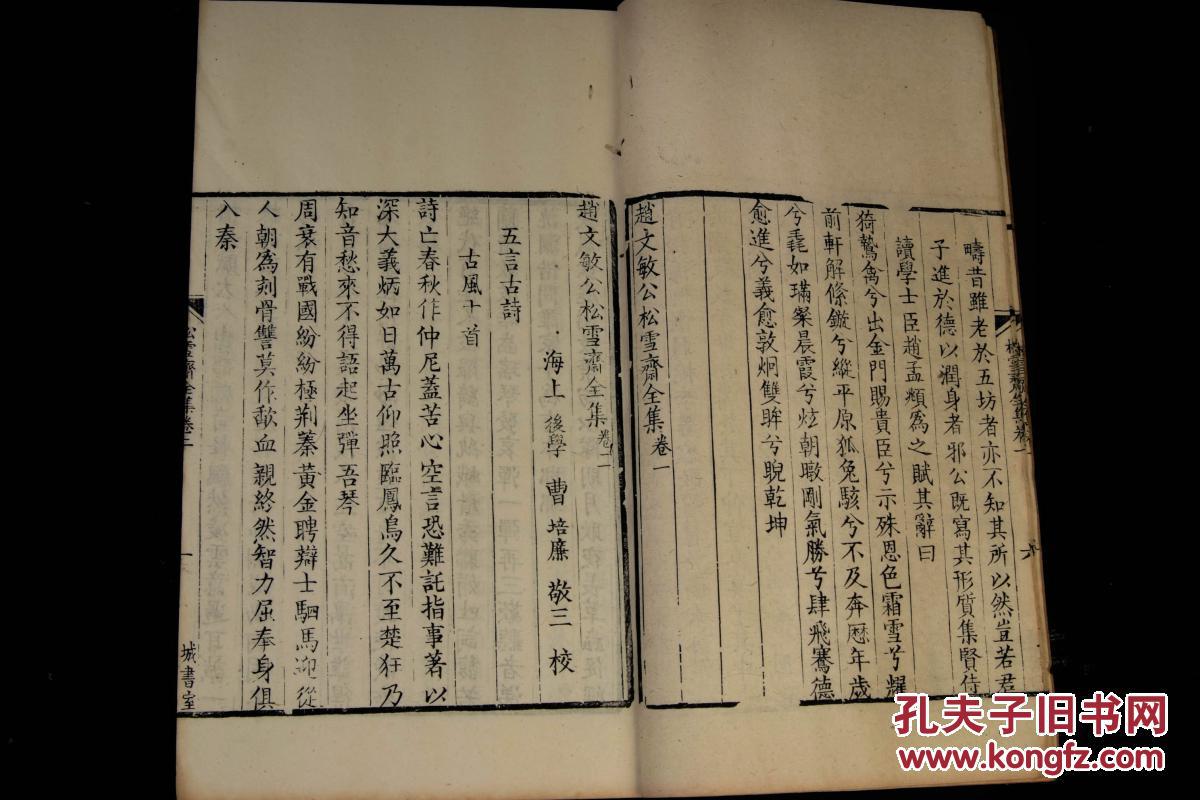 疇昔雖老於五坊者亦不知其所以然豈若君
子進於德以潤身者邪公既寫其形質集賢侍
讀學士臣趙孟頫為之賦其辭曰
猗鷙禽兮出金門賜貴臣兮示殊恩色霜雪兮耀
前軒解絛鏇兮縱平原狐兔駭兮不及奔歷年歲
兮毳如璊粲晨霞兮炫朝暾剛氣勝兮肆飛騫德
愈進兮義愈敦炯雙眸兮睨乾坤
趙文敏公松雪齋全集卷一
趙文敏公松雪齋全集卷二
海上後學曹培廉敬三校
五言古詩
古風十首
詩亡春秋作仲尼蓋苦心空言恐難託指事著以
深大義炳如日萬古仰照臨鳳鳥久不至楚狂乃
知音愁來不得語起坐彈吾琴
周衰有戰國紛紛極荆蓁黃金聘辯士駟馬迎從
人朝為刻骨讐莫作歃血親終然智力屈奉身俱
入秦
松雪齋全集卷二
一
城書室
孔夫子旧书网
www.kongfz.com